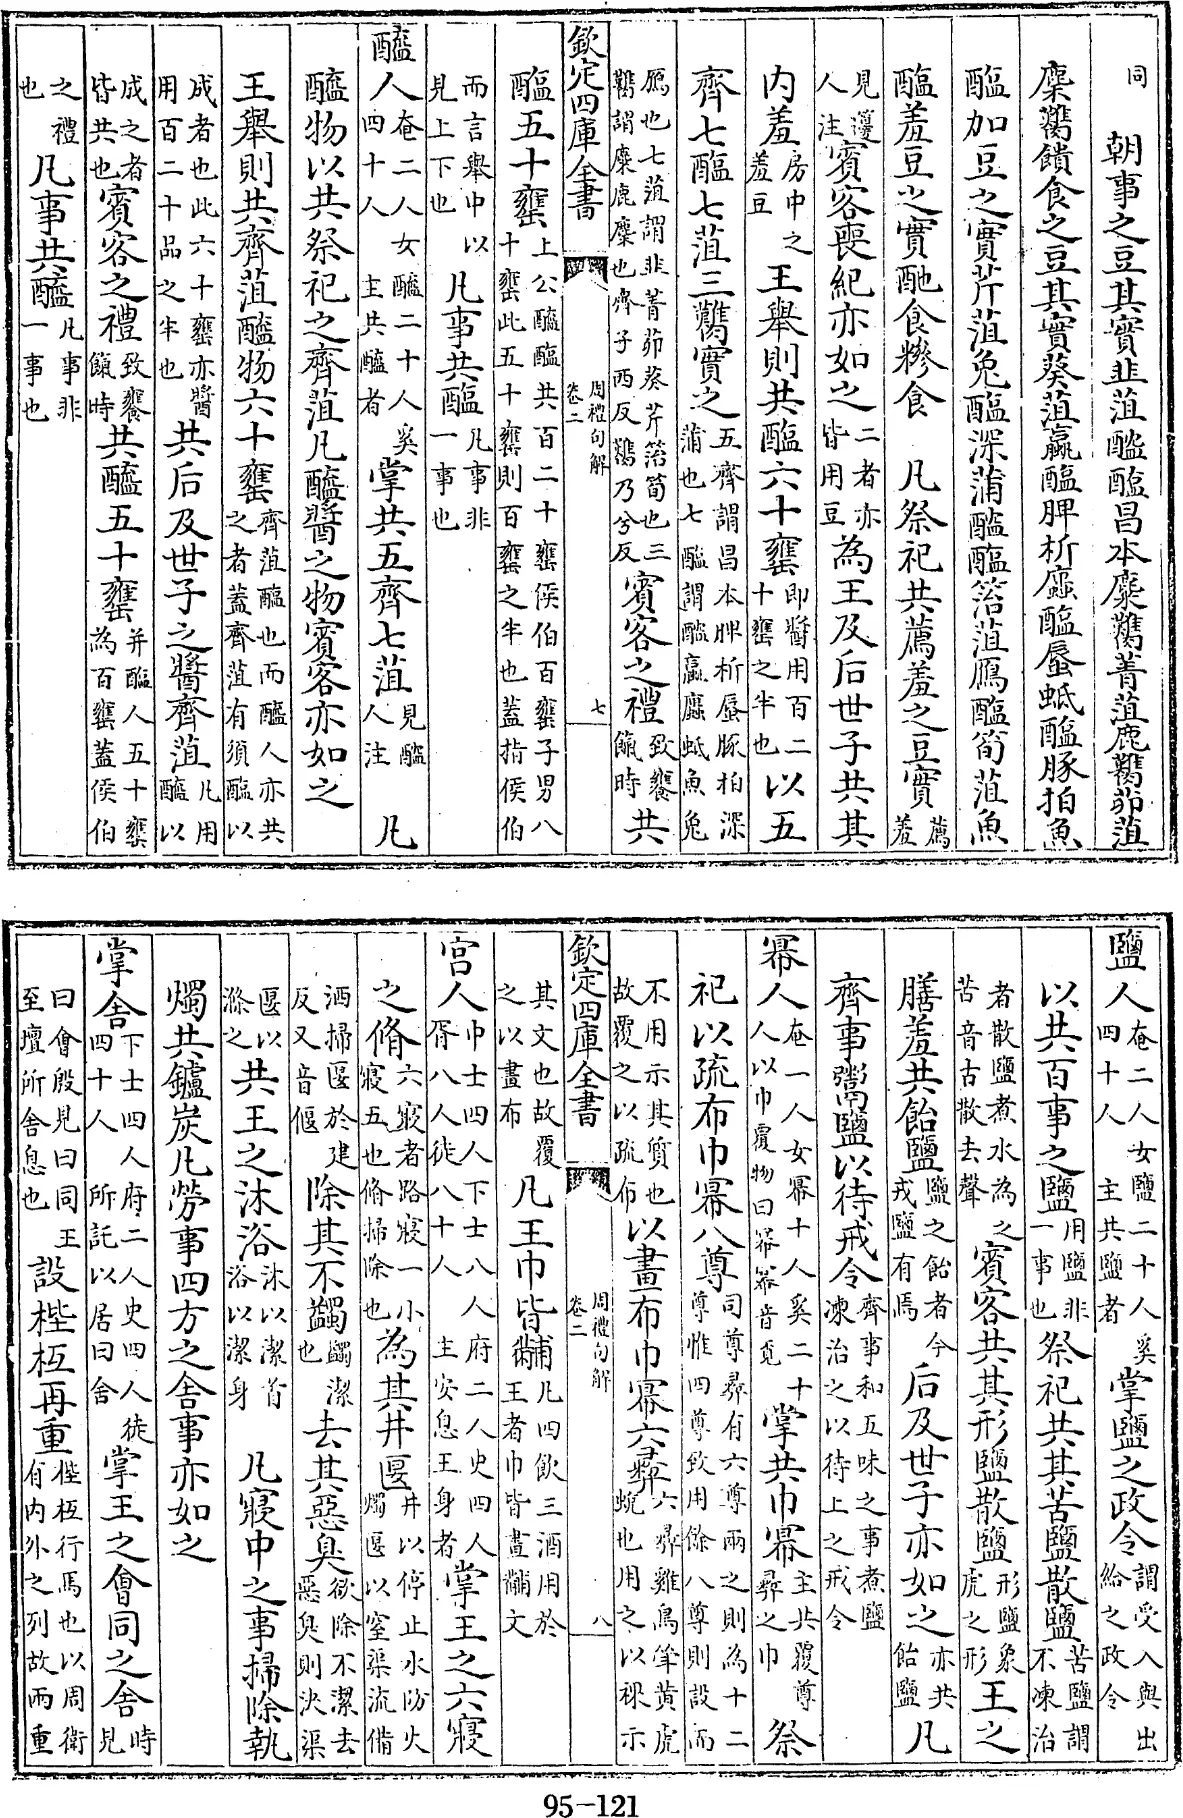 同 朝事之豆其實韭菹醓醢昌本麋臡菁菹鹿臡茆菹
麋臡饋食之豆其實葵菹蠃醢脾析蠯醢蜃蚳醢豚拍魚
醢加豆之實芹菹兔醢深蒲醓醢箈菹鴈醢筍菹魚
醢羞豆之實酏食糝食 凡祭祀共薦羞之豆實薦羞
見籩人注賓客喪紀亦如之二者亦皆用豆為王及后世子共其
内羞房中之羞豆王舉則共醢六十罋即醬用百二十罋之半也以五
齊七醢七菹三臡實之五齊謂昌本脾析蜃豚拍深蒲也七醢謂醓蠃蠯蚳魚兔
鴈也七菹謂韭菁茆葵芹箈筍也三臡謂麋鹿麇也齊子西反臡乃兮反賓客之禮致饔餼時共
欽定四庫全書 周禮句解 卷二 七
醢五十罋上公醯醢共百二十罋侯伯百罋子男八十罋此五十罋則百罋之半也蓋指侯伯
而言舉中以見上下也 凡事共醢凡事非一事也
醯人奄二人女醯二十人奚四十人 主共醯者掌共五齊七菹見醢人注 凡
醯物以共祭祀之齊菹凡醯醬之物賓客亦如之
王舉則共齊菹醯物六十罋齊菹醢也而醯人亦共之者蓋齊菹有須醯以
成者也此六十罋亦醬用百二十品之半也 共后及世子之醬齊菹凡用醯以
成之者皆共也賓客之禮致饔餼時共醯五十罋并醢人五十罋為百罋蓋侯伯
之禮也 凡事共醯凡事非一事也
鹽人奄二人女鹽二十人奚四十人 主共鹽者掌鹽之政令謂受入與出給之政令
以共百事之鹽用鹽非一事也祭祀共其苦鹽散鹽苦鹽謂不凍治
者散鹽煮水為之苦音古散去聲賓客共其形鹽散鹽形鹽象虎之形王之
膳羞共飴鹽鹽之飴者今戎鹽有焉 后及世子亦如之亦共飴鹽 凡
齊事鬻鹽以待戒令齊事和五味之事煮鹽凍治之以待上之戒令
冪人奄一人女冪十人奚二十人以巾覆物曰冪冪音覓掌共巾冪主共覆尊彝之巾 祭
祀以疏布巾冪八尊司尊彝有六尊兩之則為十二尊惟四尊致用餘八尊則設而
不用示其質也故覆之以疏布以畫布巾冪六彝六彝雞鳥斝黃虎蜼也用之以祼示
欽定四庫全書 周禮句解 卷二 八
其文也故覆之以畫布 凡王巾皆黼凡四飲三酒用於王者巾皆畫黼文
宫人中士四人下士八人府二人史四人胥八人徒八十人 主安息王身者掌王之六寢
之脩六寢者路寢一小寢五也脩掃除也為其井匽井以停止水防火燭匽以窒渠流備
洒掃匽於建反又音偃 除其不蠲蠲潔也去其惡臭欲除不潔去惡臭則決渠
匽以滌之共王之沐浴沐以潔首浴以潔身 凡寢中之事掃除執
燭共鑪炭凡勞事四方之舍事亦如之
掌舍下士四人府二人史四人徒四十人 所託以居曰舍掌王之會同之舍時見
曰會殷見曰同王至壇所舍息也 設梐枑再重梐枑行馬也以周衛有内外之列故兩重
95-121